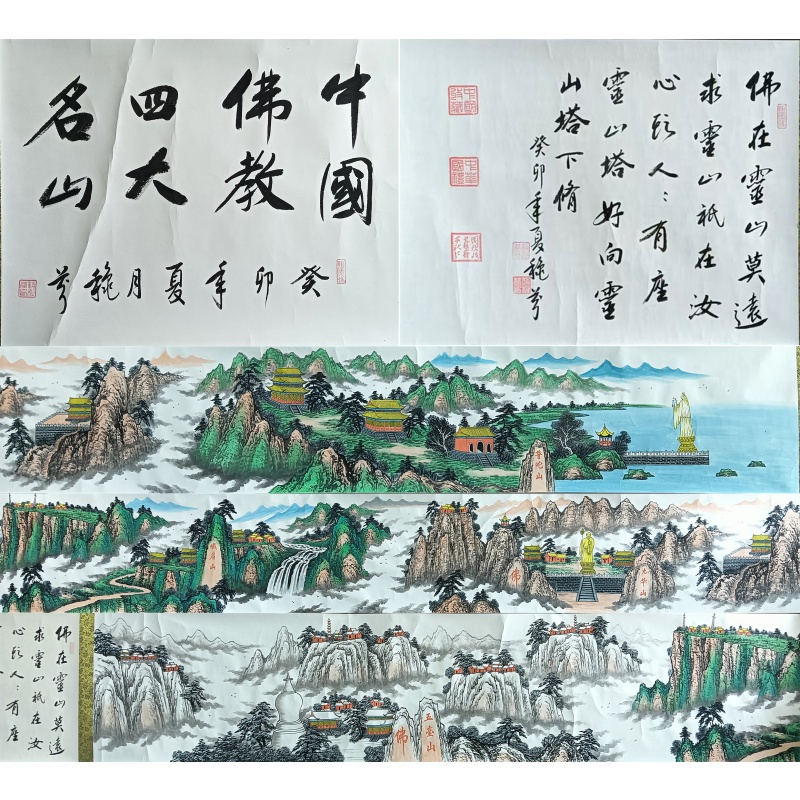 中國
佛教
四大
名山
癸卯年夏月
佛在靈山莫遠
求靈山祇在汝
心頭人〻有座
靈山塔好向靈
山塔下脩
癸卯年夏
普陀山
峨眉山
佛
九华山
佛在靈山莫遠
求靈山祇在汝
心頭人〻有座
佛
五臺山